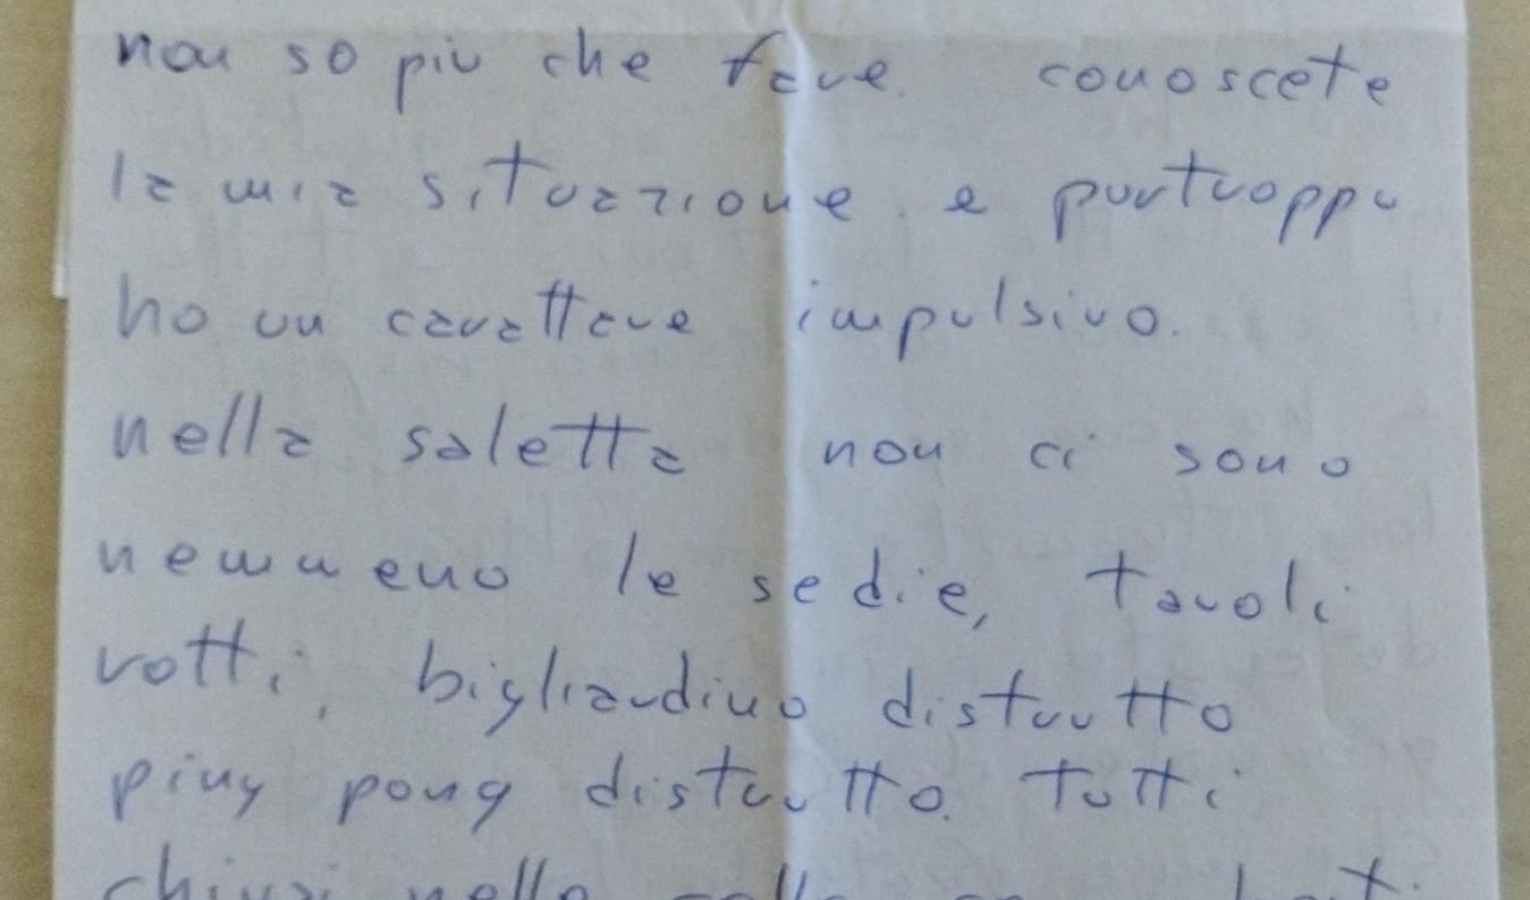 non so più che fare. conoscete
la mia situazione. e purtroppo
ho un carattere impulsivo.
nella saletta non ci sono
nemmeno le sedie, tavoli
rotti, bigliardino distrutto
ping pong distrutto. Tutti
chiusi nelle celle